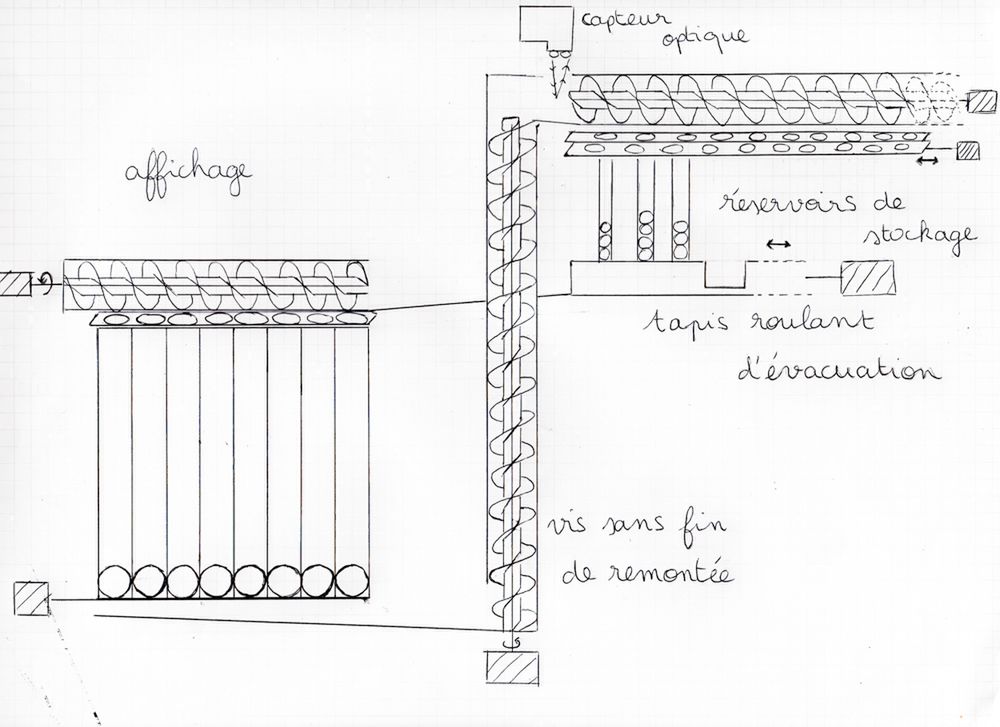 capteur
optique
affichage
réservoirs de
stockage
tapis roulant
d'évacuation
vis sans fin
de remontée